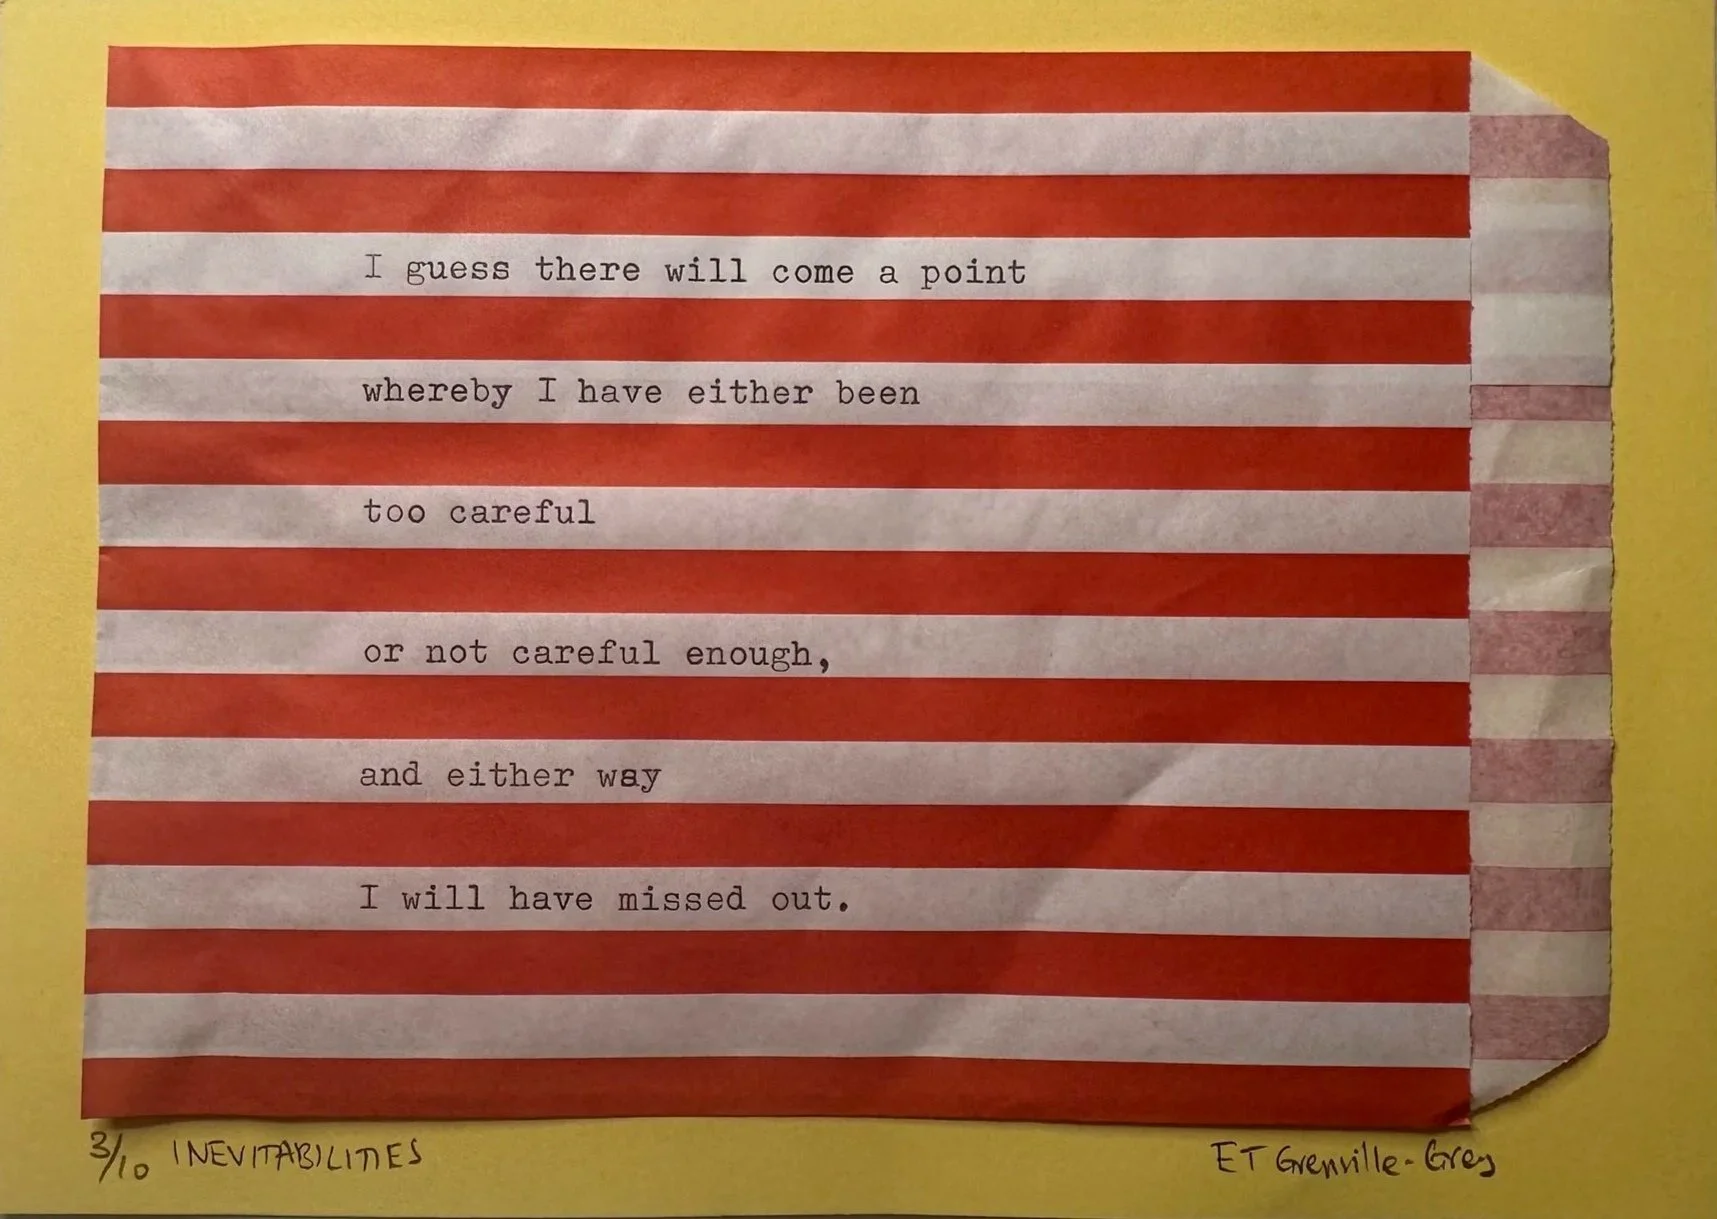 I guess there will come a point
whereby I have either been
too careful
or not careful enough,
and either way
I will have missed out.
3/10 INEVITABILITIES
ET Grenville-Grey